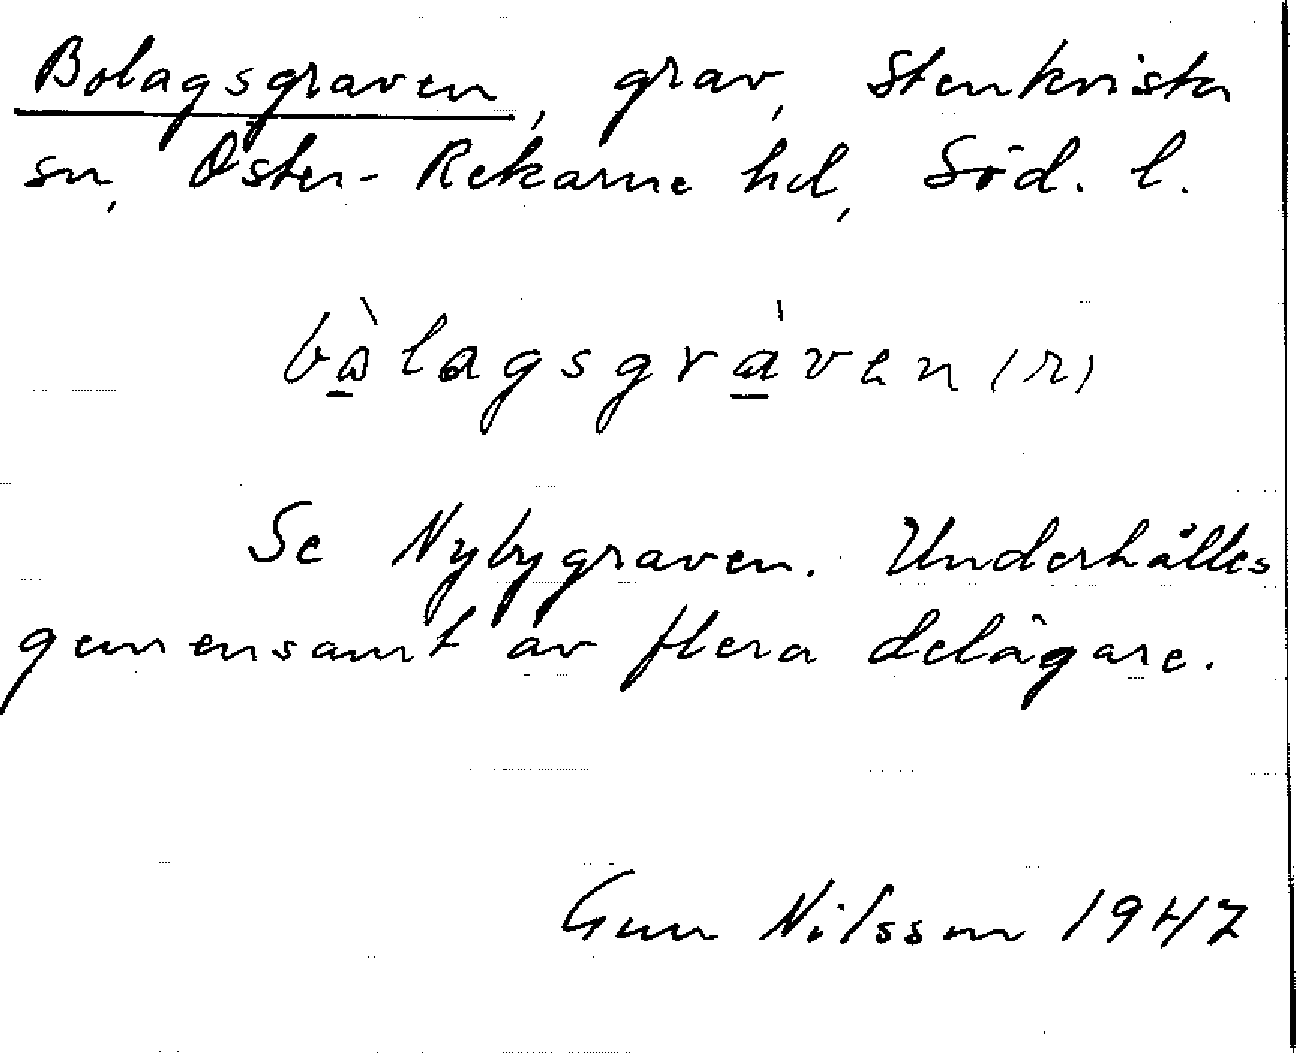 Bolagsgraven, grav, Stenkvista
sn, Öster-Rekarne hd, Söd. l.
bὼ̲lagsgrà̲ven (r)
Se Nybygraven. Underhålles
gemensamt av flera delägare.
Gun Nilsson 1947